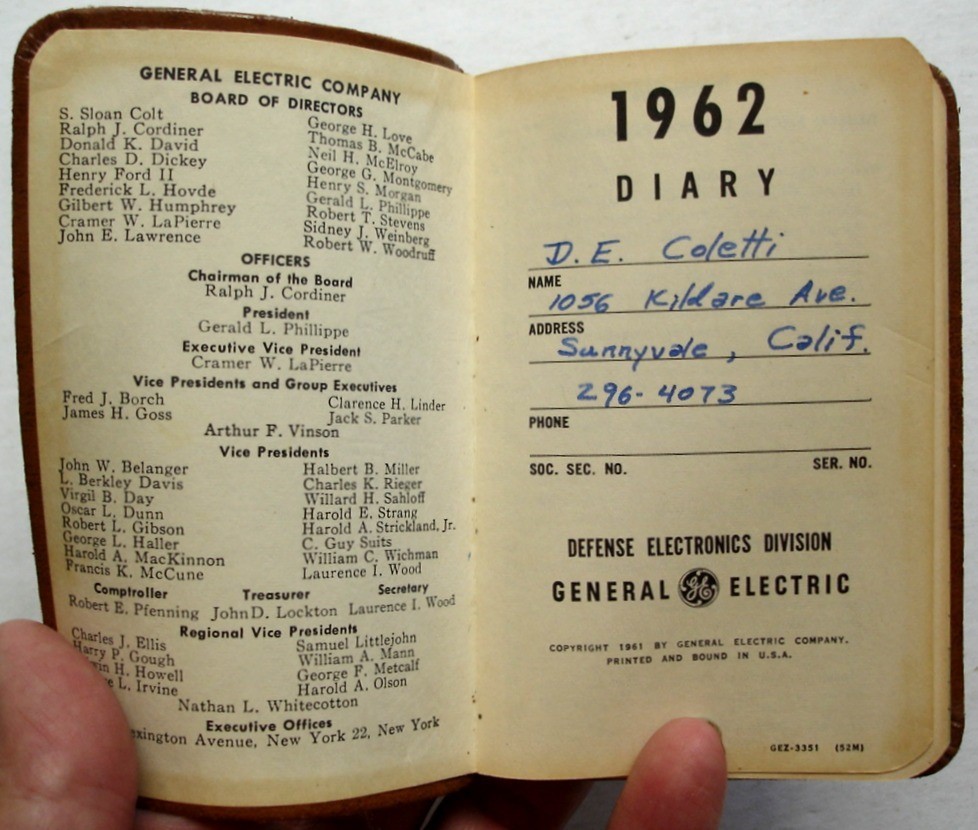 GENERAL ELECTRIC COMPANY
BOARD OF DIRECTORS
S. Sloan Colt
Ralph J. Cordiner
Donald K. David
Charles D. Dickey
Henry Ford II
Frederick L. Hovde
Gilbert W. Humphrey
Cramer W. LaPierre
John E. Lawrence
George H. Love
Thomas B. McCabe
Neil H. McElroy
George G. Montgomery
Henry S. Morgan
Gerald L. Phillippe
Robert T. Stevens
Sidney J. Weinberg
Robert W. Woodruff
OFFICERS
Chairman of the Board
Ralph J. Cordiner
President
Gerald L. Phillippe
Executive Vice President
Cramer W. LaPierre
Vice Presidents and Group Executives
Fred J. Borch
James H. Goss
Clarence H. Linder
Jack S. Parker
Arthur F. Vinson
Vice Presidents
John W. Belanger
L. Berkley Davis
Virgil B. Day
Oscar L. Dunn
Robert L. Gibson
George L. Haller
Harold A. MacKinnon
Francis K. McCune
Halbert B. Miller
Charles K. Rieger
Willard H. Sahloff
Harold E. Strang
Harold A. Strickland, Jr.
C. Guy Suits
William C. Wichman
Laurence I. Wood
Comptroller Treasurer Secretary
Robert E. Pfenning John D. Lockton Laurence I. Wood
Regional Vice Presidents
Charles J. Ellis
Harry P. Gough
H. Howell
L. Irvine
Samuel Littlejohn
William A. Mann
George F. Metcalf
Harold A. Olson
Nathan L. Whitecotton
Executive Offices
Avenue, New York 22, New York
1962
DIARY
D. E. Coletti
NAME
1056 Kildare Ave.
ADDRESS
Sunnyvale, Calif.
296-4073
PHONE
SOC. SEC. NO. SER. NO.
DEFENSE ELECTRONICS DIVISION
GENERAL GE ELECTRIC
COPYRIGHT 1961 BY GENERAL ELECTRIC COMPANY.
PRINTED AND BOUND IN U.S.A.
GEZ-3351 (52M)